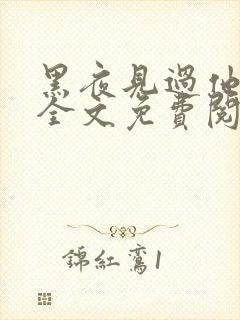 黑夜見過他
全文免費閱
錦紅鸞1